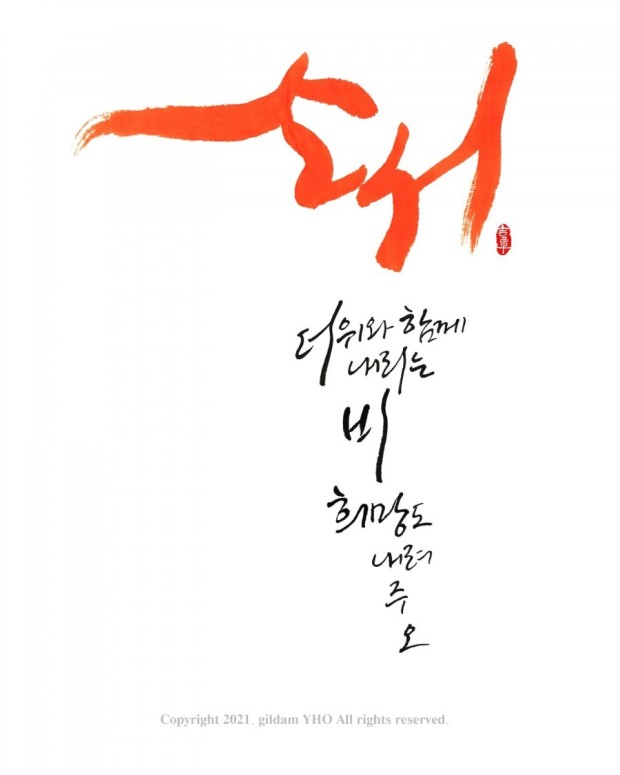 소서
더위와 함께
내리는
비
희망도
내려
주
오
Copyright 2021. gildam YHO All rights reserved.